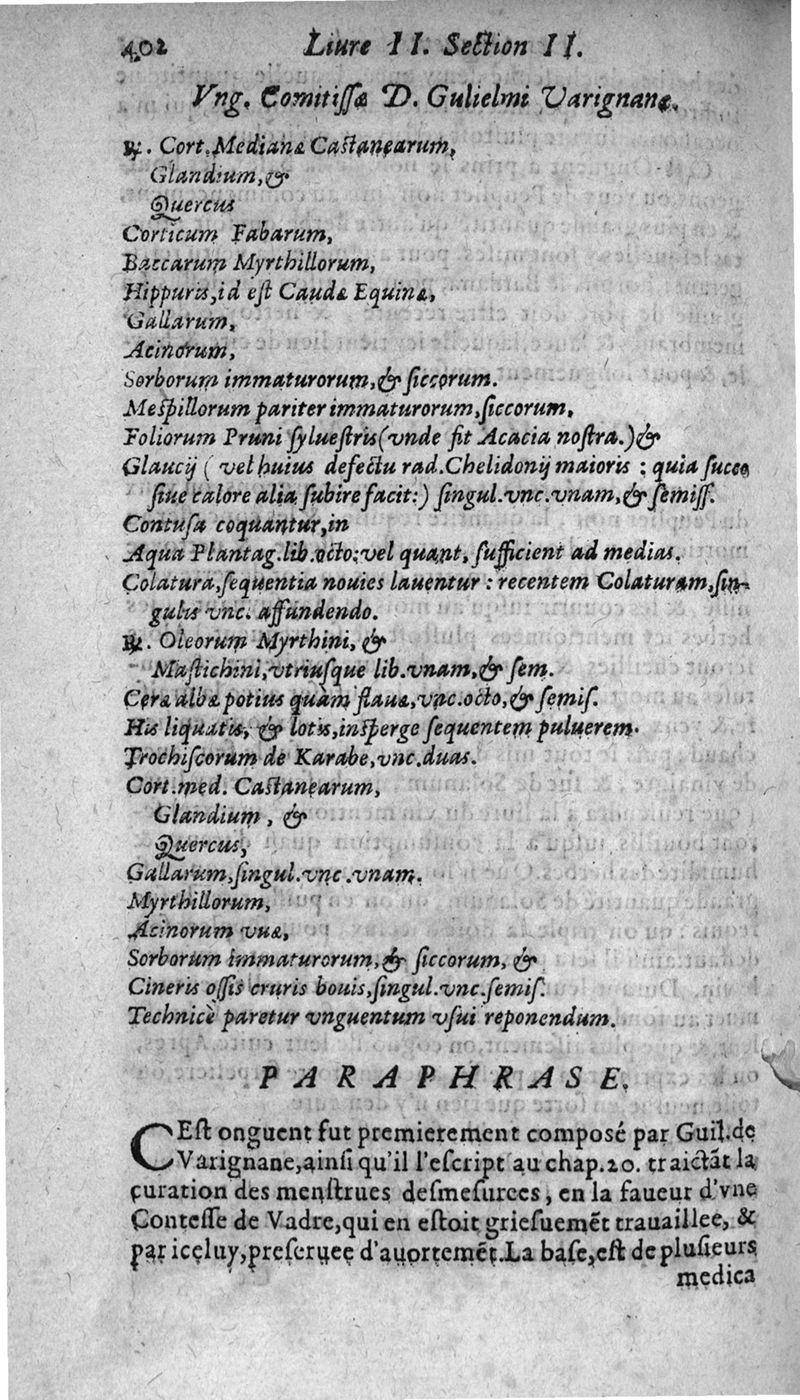 402 Liure II. Section II.
Vng. Comitissæ D. Gulielmi Varignanę.
℞. Cort. Medianæ Castanęarum,
Glandium, &
Quercus
Corticum Fabarum,
Baccarum Myrthillorum,
Hippuris, id est Caudæ Equinæ,
Gallarum,
Acinorum,
Sorborum immaturorum, & siccorum.
Mespillorum pariter immaturorum, siccorum,
Foliorum Pruni syluestris (vnde fit Acacia nostra.) &
Glaucij ( vel huius defectu rad. Chelidonij maioris : quia succo
siue calore alia subire facit:) singul. vnc. vnam, & semiss.
Contusa coquantur, in
Aqua Plantag. lib. octo: vel quant, sufficient ad medias.
Colatura, sequentia nouies lauentur : recentem Colaturam, sin-
gulis vnc. affundendo.
℞. Oleorum Myrthini, &
Mastichini, vtriusque lib. vnam, & sem.
Ceræ albæ potius quàm flauæ, vnc. octo, & semis.
His liquatis, & lotis, insperge sequentem puluerem.
Trochiscorum de Karabe, vnc. duas.
Cort. med. Castanęarum,
Glandium, &
Quercus,
Gallarum, singul. vnc. vnam.
Myrthillorum,
Acinorum vuæ,
Sorborum immaturorum, & siccorum, &
Cineris ossis cruris bouis, singul. vnc. semis.
Technicè paretur vnguentum vsui reponendum.
PARAPHRASE.
CEst onguent fut premierement composé par Guil. de
Varignane, ainsi qu'il l'escript au chap. 20. traictãt la
curation des menstrues desmesurees, en la faueur d'vne
Contesse de Vadre, qui en estoit griesuemẽt trauaillee, &
par icęluy, preseruee d'auortemẽt. La base, est de plusieurs
medica